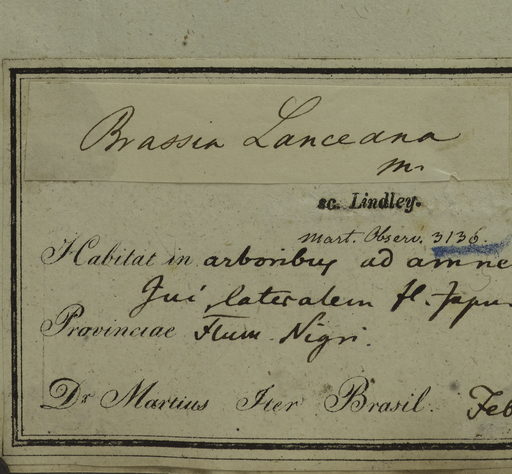 Brassia Lanceana
m.
sc. Lindley.
Mart. Observ. 3136
Habitat in arboribus ad amne
Jui, lateralem fl. Japu
Provinciae Flum. Nigri.
Dr Martius Iter Brasil. Feb